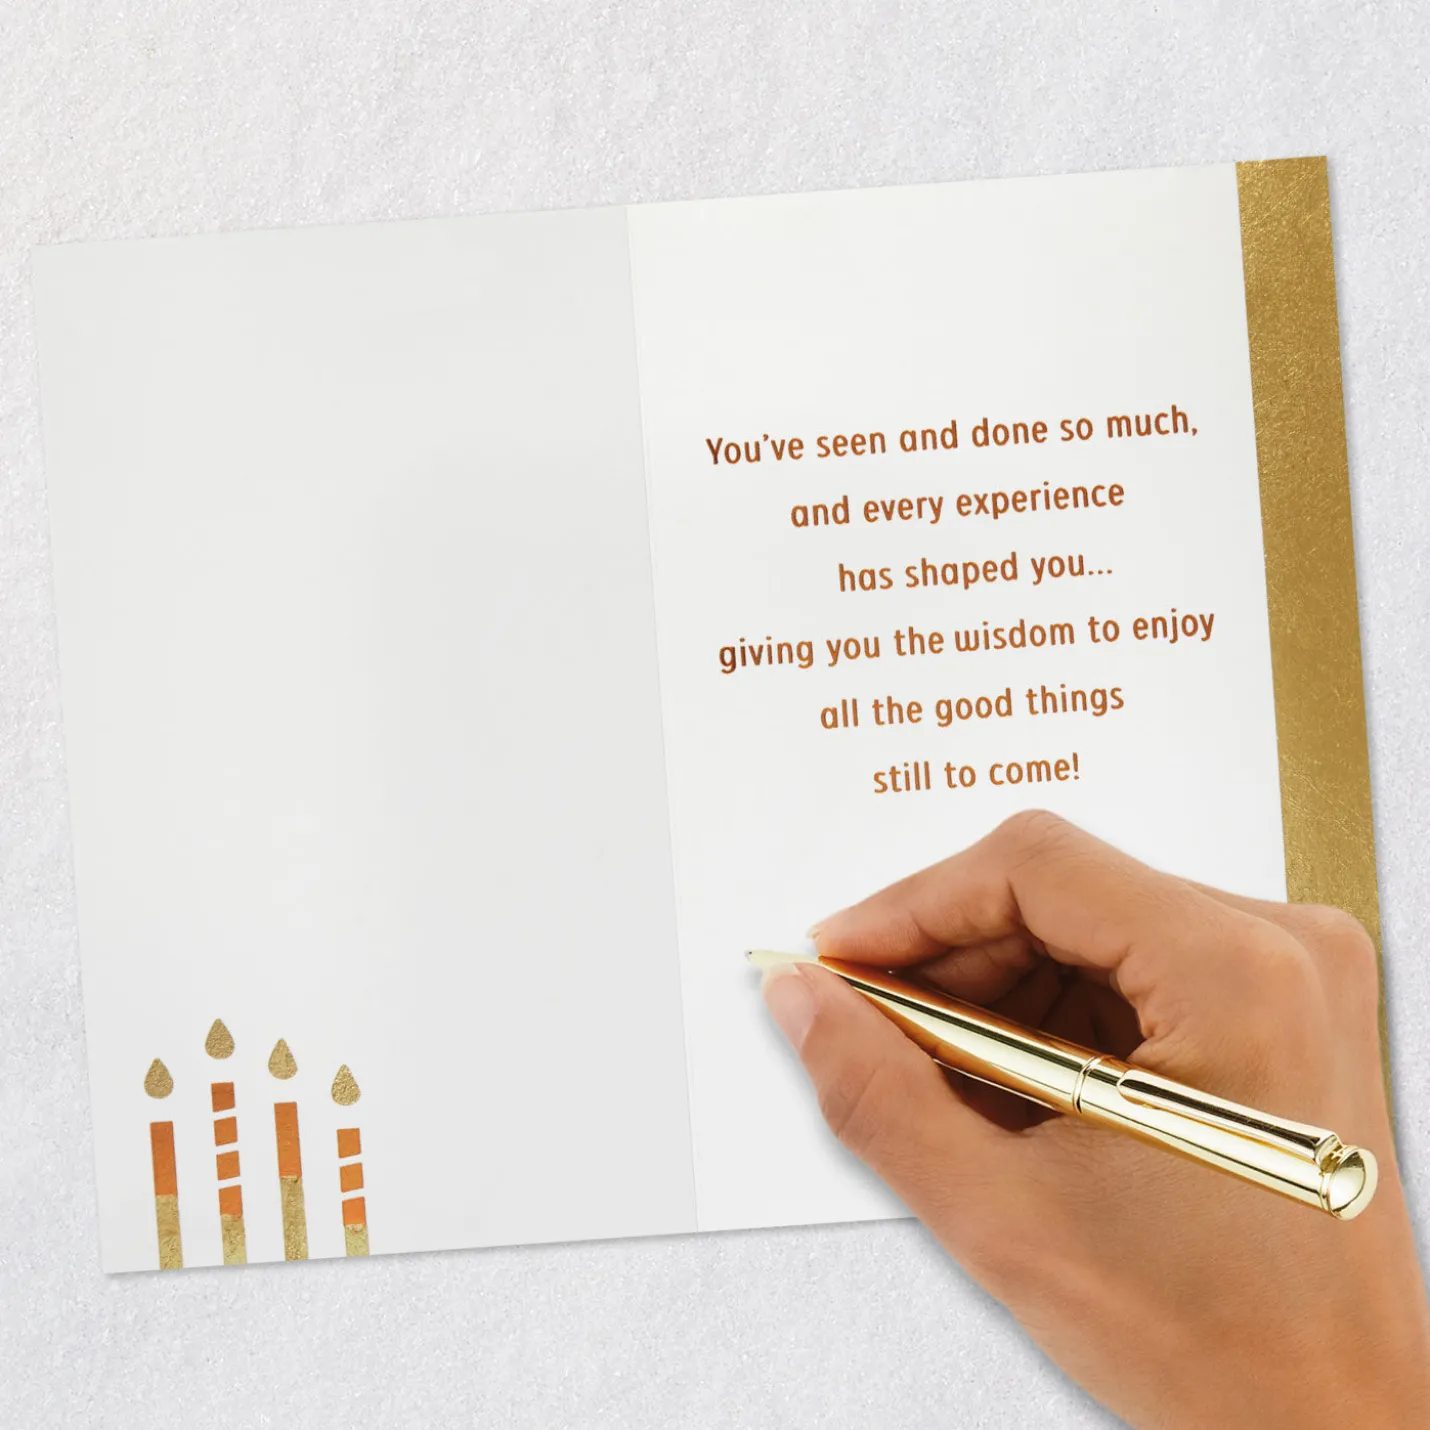 You've seen and done so much,
and every experience
has shaped you...
giving you the wisdom to enjoy
all the good things
still to come!